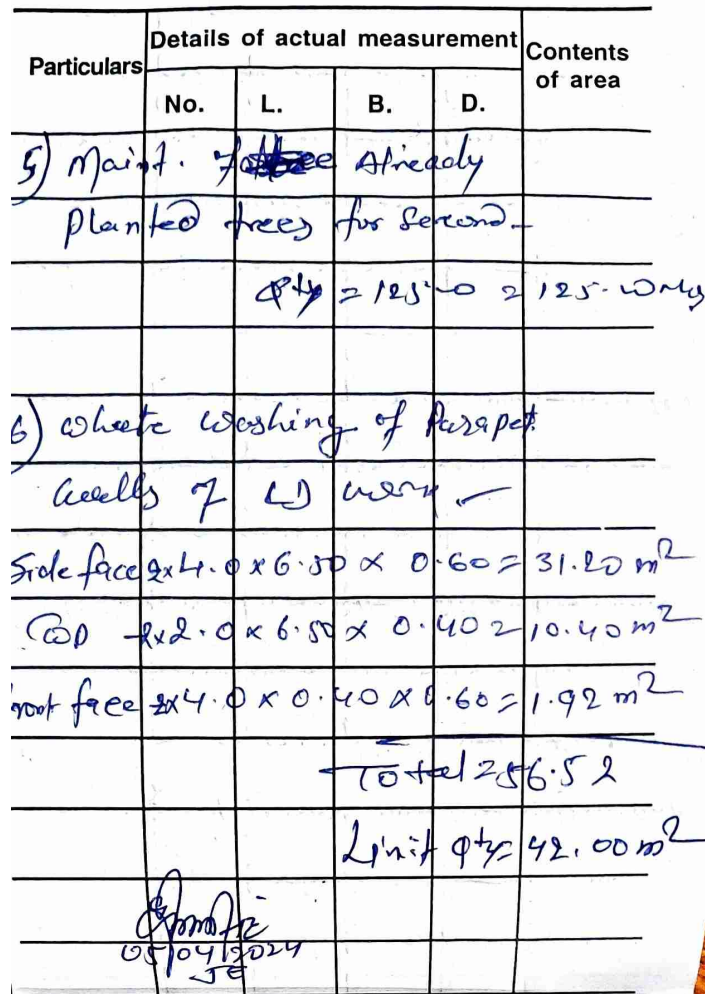 Particulars Details of actual measurement Contents of area
No. L. B. D.
5) Maint. Already
Planted trees for Second -
Qty = 125 = 125.
6) White Washing of Parapet
walls of CD work
Side face 2x4.0 x 6.50 x 0.60 = 31.20 m²
TOP - 2x2.0 x 6.50 x 0.40 = 10.40 m²
front face 2x4.0 x 0.40 x 0.60 = 1.92 m²
Total = 56.52
Limit Qty = 42.00 m²
05/04/2024
JE